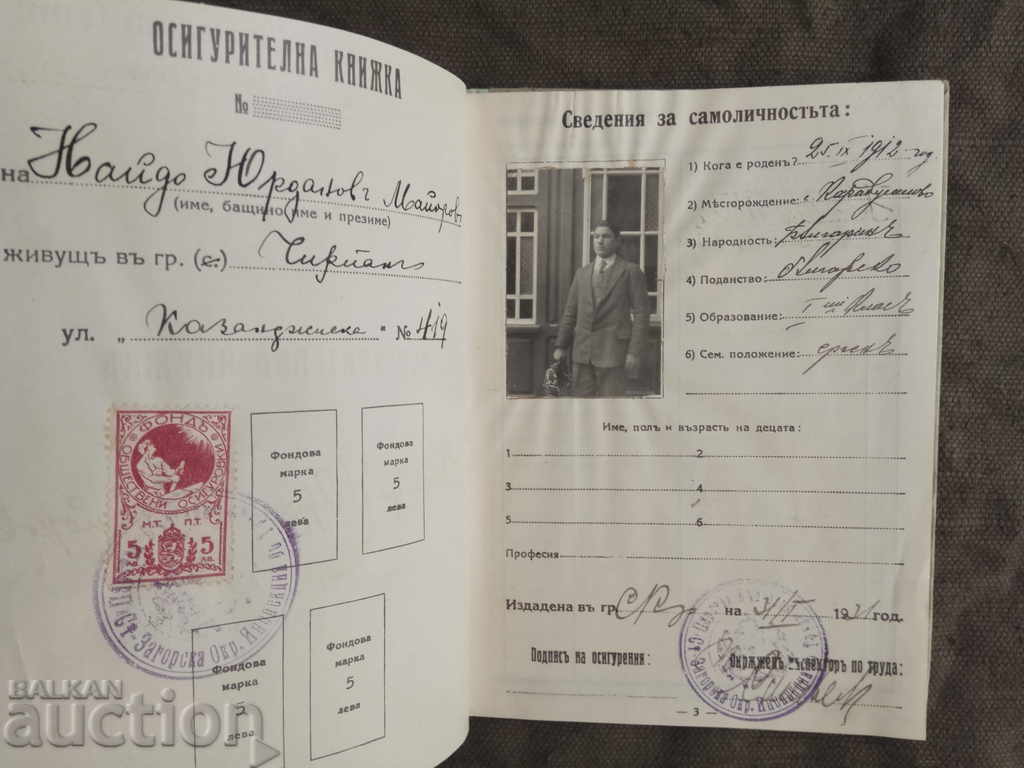 ОСИГУРИТЕЛНА КНИЖКА
№
на Найдо Юрдановъ Майоровъ
(име, бащино име и презиме)
живущъ въ гр. (с.) Чирпанъ
ул. „ Казанджийска “ № 419
ФОНДЪ
ОБЩЕСТВЕНИ ОСИГУРОВКИ
М.Т. П.Т.
5 ЛВ. 5 ЛВ.
Фондова марка 5 лева
Фондова марка 5 лева
Фондова марка 5
Фондова марка 5 лева
Ст.-Загорска Окр. Инспекция
Сведения за самоличностьта:
1) Кога е роденъ? 25 IX 1912 год
2) Мѣсторождение:
3) Народность: Българинъ
4) Поданство: българско
5) Образование: класъ
6) Сем. положение: ергенъ
Име, полъ и възрасть на децата:
1 2
3 4
5 6
Професия
Издадена въ гр. на 1931 год.
Подпис на осигурения: Окрѫженъ инспекторъ по труда:
Ст.-Загорска Окр. Инспекция
— 3 —
BALKAN
auction